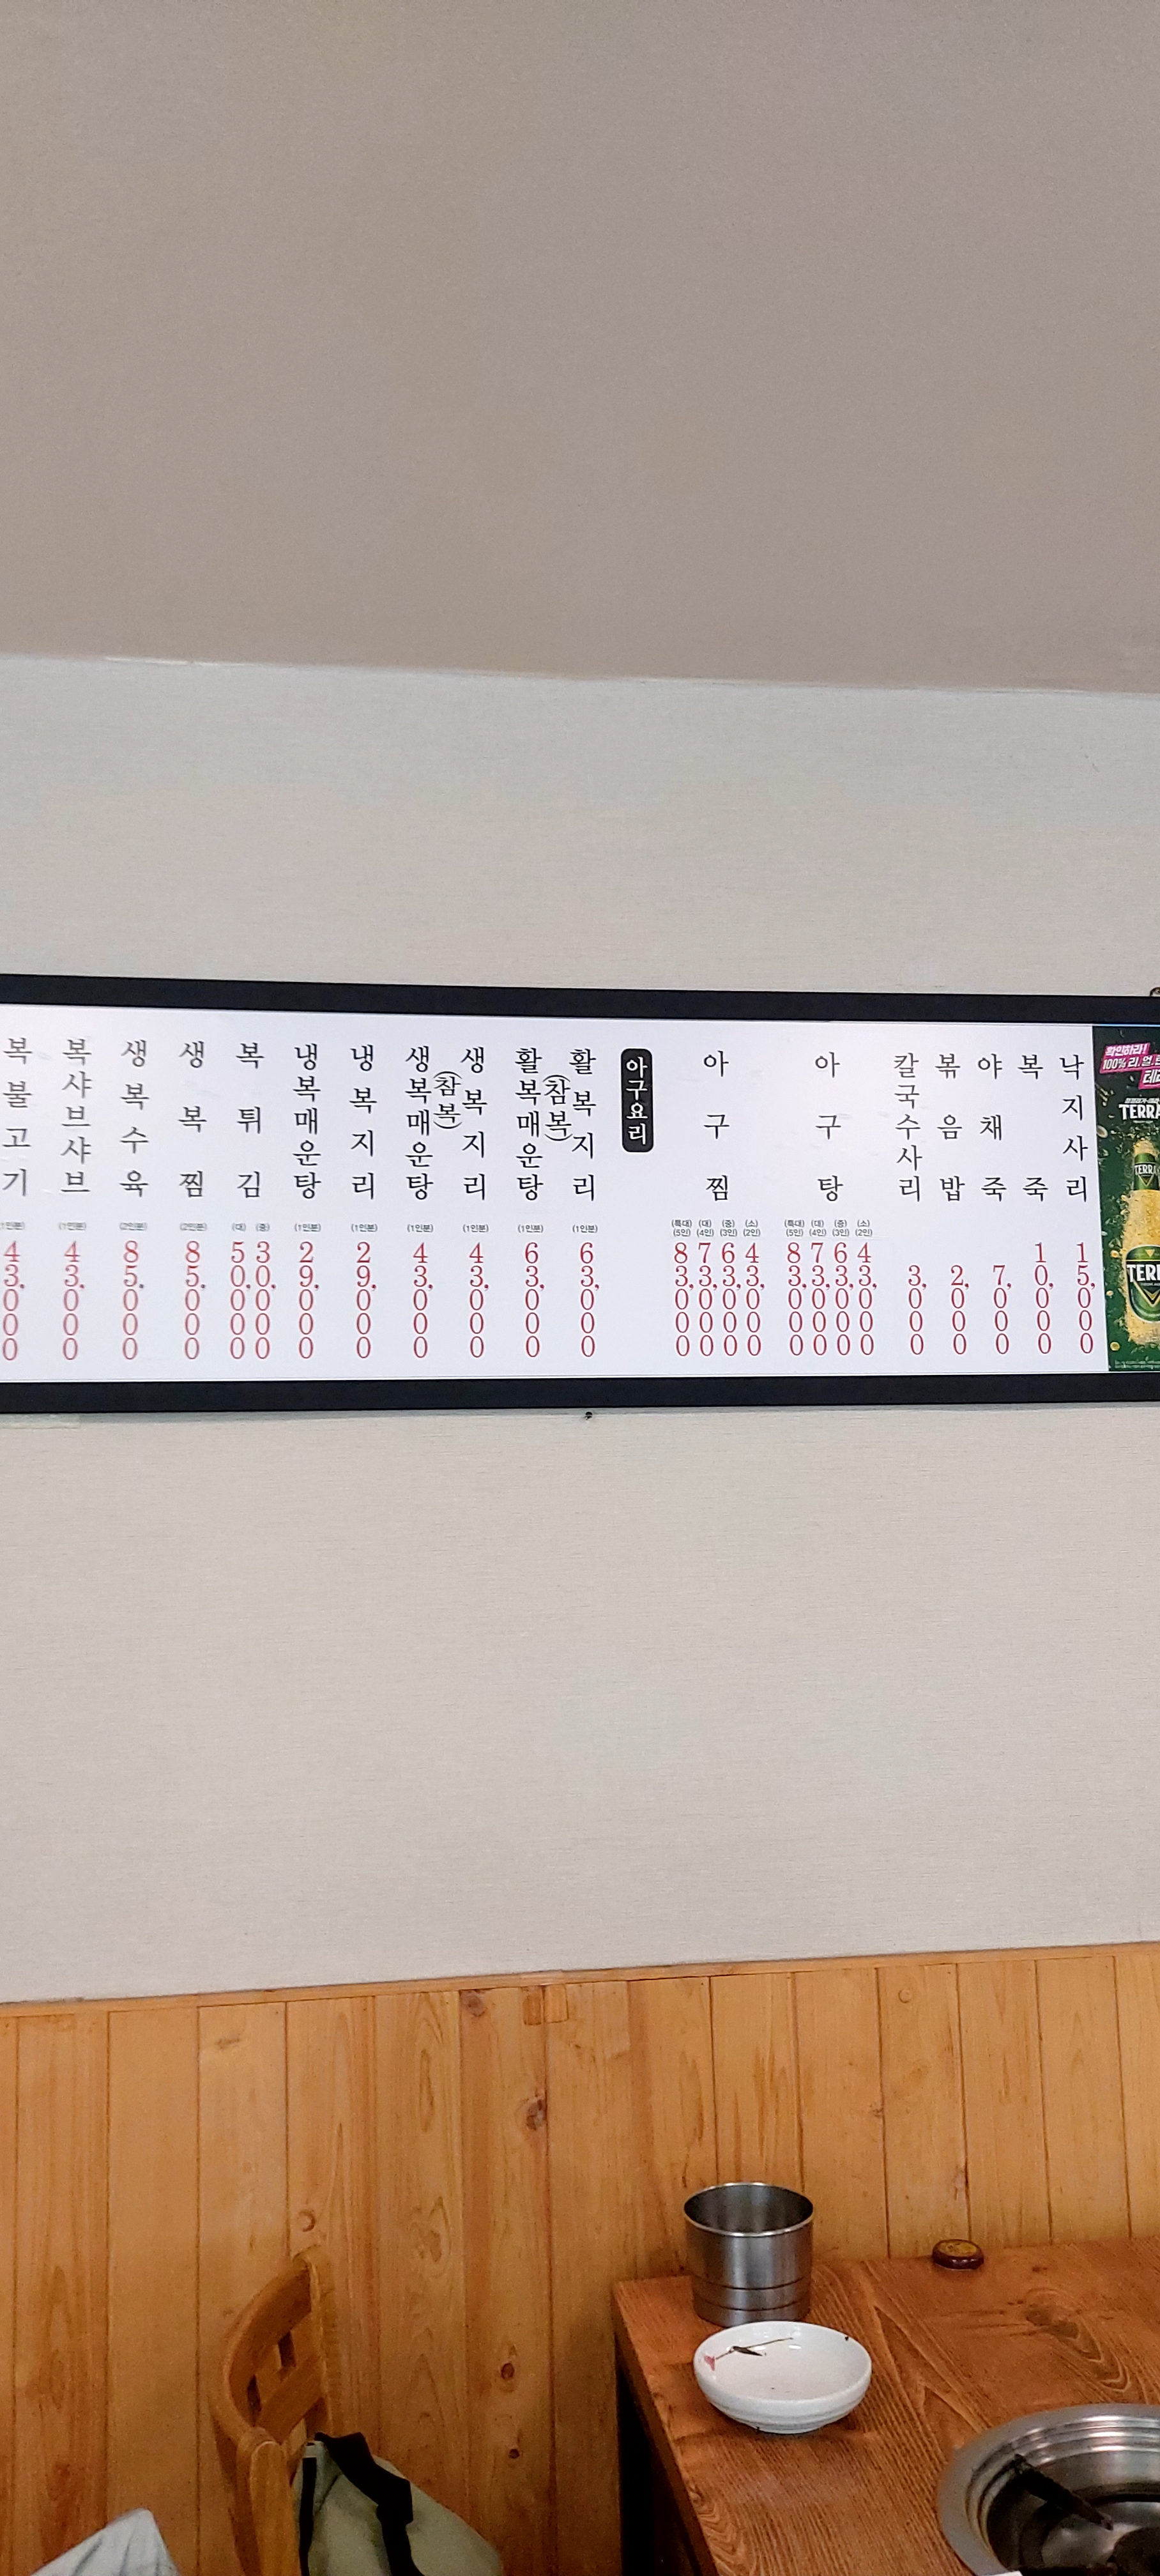 복불고기 (1인분) 43,000
복샤브샤브 (1인분) 43,000
생복수육 (2인분) 85,000
생복찜 (2인분) 85,000
복튀김 (대) 50,000 (중) 30,000
냉복매운탕 (1인분) 29,000
냉복지리 (1인분) 29,000
생복매운탕 (1인분) 43,000
(참복)
생복지리 (1인분) 43,000
활복매운탕 (1인분) 63,000
(참복)
활복지리 (1인분) 63,000
아구요리
아구찜 (특대) (5인) 83,000 (대) (4인) 73,000 (중) (3인) 63,000 (소) (2인) 43,000
아구탕 (특대) (5인) 83,000 (대) (4인) 73,000 (중) (3인) 63,000 (소) (2인) 43,000
칼국수사리 3,000
볶음밥 2,000
야채죽 7,000
복죽 10,000
낙지사리 15,000
확인하라!
100% 리.얼.
테라
TERRA
TERRA
TERR